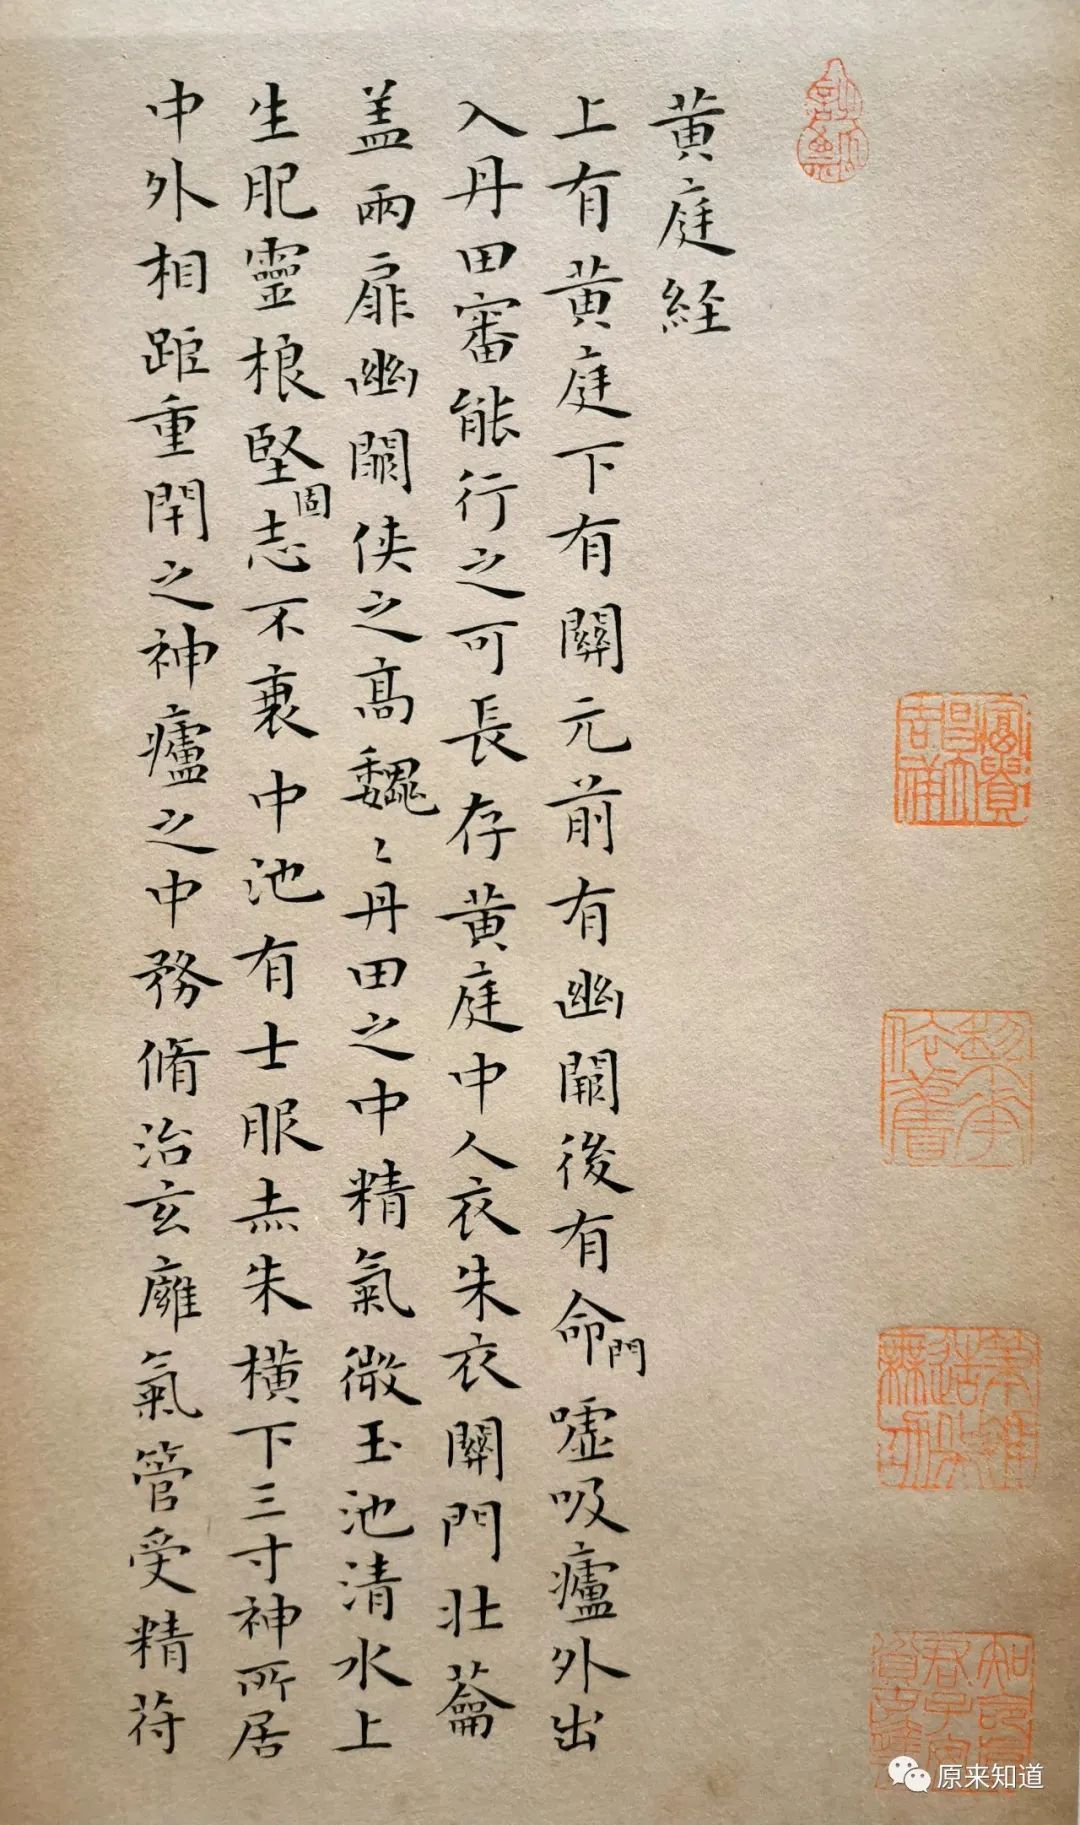 黄庭経
上有黄庭下有關元前有幽闕後有命門嘘吸廬外出
入丹田審能行之可長存黄庭中人衣朱衣關門壮蘥
盖兩扉幽闕俠之髙魏〻丹田之中精氣微玉池清水上
生肥靈根堅固志不衰中池有士服赤朱横下三寸神所居
中外相距重閇之神廬之中務脩治玄廱氣管受精苻
原来知道